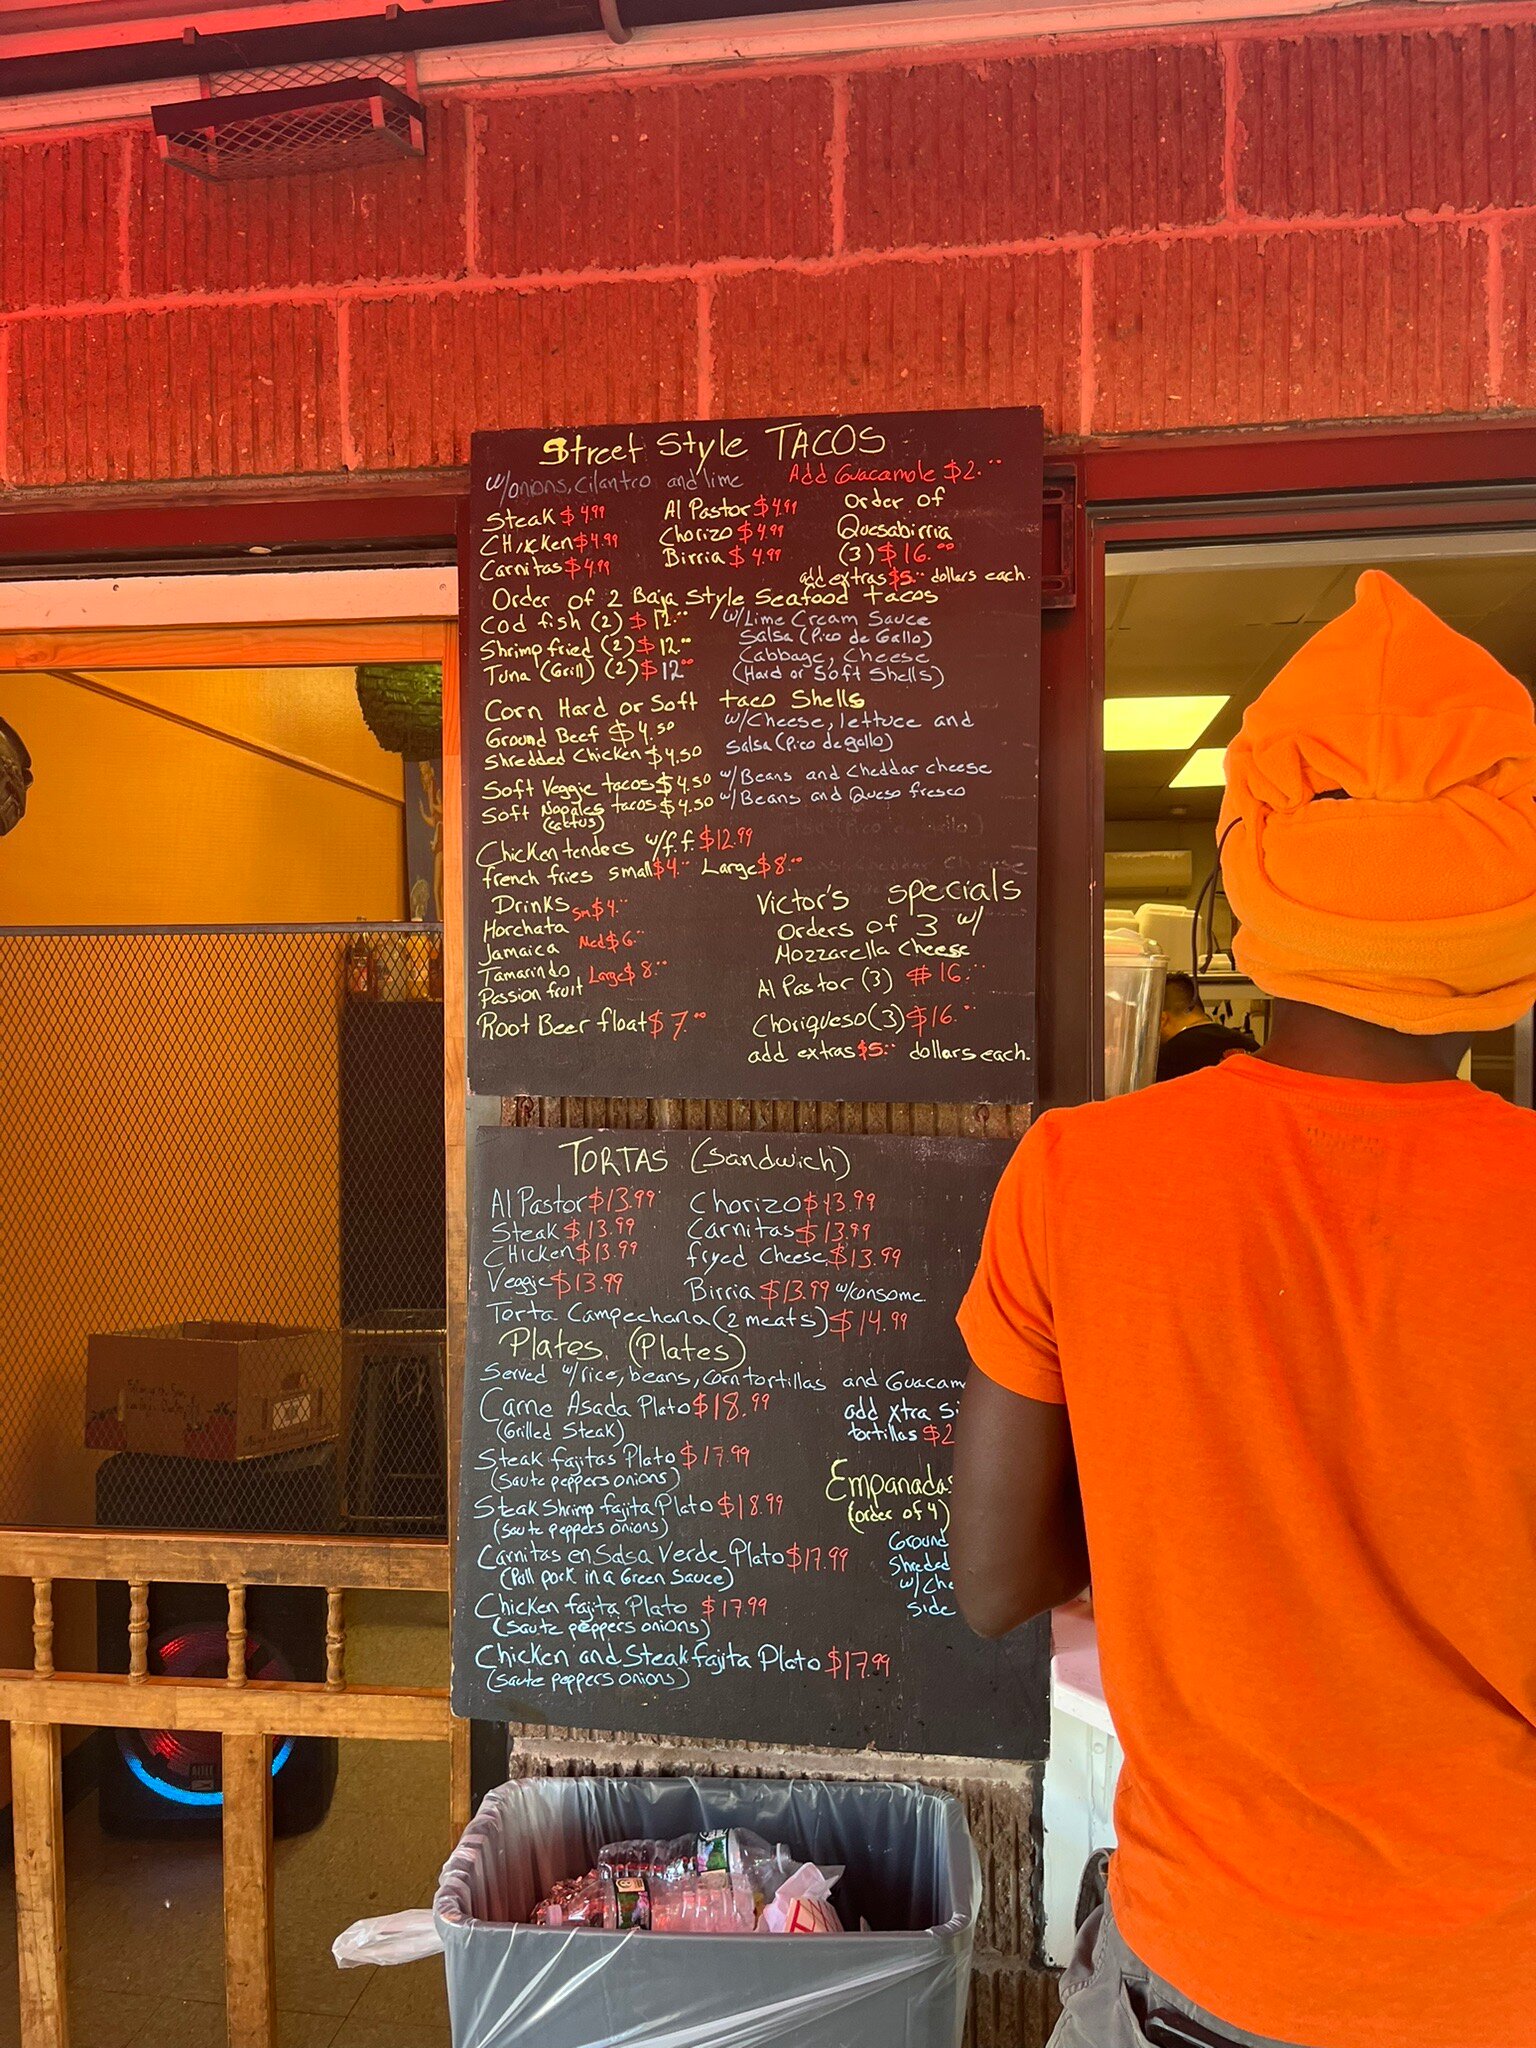 Street Style TACOS
w/onions, cilantro and lime
Add Guacamole $2.00
Steak $4.99
CHicken $4.99
Carnitas $4.99
Al Pastor $4.99
Chorizo $4.99
Birria $4.99
Order of
Quesabirria
(3) $16.00
add extras $5.00 dollars each.
Order of 2 Baja Style Seafood tacos
Cod fish (2) $12.00
Shrimp fried (2) $12.00
Tuna (Grill) (2) $12.00
w/Lime Cream Sauce
Salsa (Pico de Gallo)
Cabbage, Cheese
(Hard or Soft Shells)
Corn Hard or Soft taco Shells
Ground Beef $4.50
Shredded Chicken $4.50
w/Cheese, lettuce and
Salsa (Pico de gallo)
Soft Veggie tacos $4.50 w/Beans and Cheddar cheese
Soft Nopales tacos $4.50 w/Beans and Queso fresco
(cactus)
Chicken tenders w/f.f. $12.99
french fries small $4.00 Large $8.00
Drinks
Horchata
Jamaica
Tamarindo
Passion fruit
Sm $4.00
Med $6.00
Large $8.00
Root Beer float $7.00
Victor's specials
orders of 3 w/
Mozzarella Cheese
Al Pastor (3) $16.00
Choriqueso (3) $16.00
add extras $5.00 dollars each.
TORTAS (Sandwich)
Al Pastor $13.99
Steak $13.99
CHicken $13.99
Veggie $13.99
Chorizo $13.99
Carnitas $13.99
fryed Cheese $13.99
Birria $13.99 w/consome
Torta Campechana (2 meats) $14.99
Plates (Plates)
Served w/rice, beans, corn tortillas and Guacam
Carne Asada Plato $18.99
(Grilled Steak)
add xtra Si
tortillas $2
Steak fajitas Plato $17.99
(Saute peppers onions)
Steak Shrimp fajita Plato $18.99
(Saute peppers onions)
Carnitas en Salsa Verde Plato $17.99
(Pull pork in a Green Sauce)
Chicken fajita Plato $17.99
(Saute peppers onions)
Chicken and Steak fajita Plato $17.99
(Saute peppers onions)
Empanadas
(order of 4)
Ground
Shreded
w/Che
side